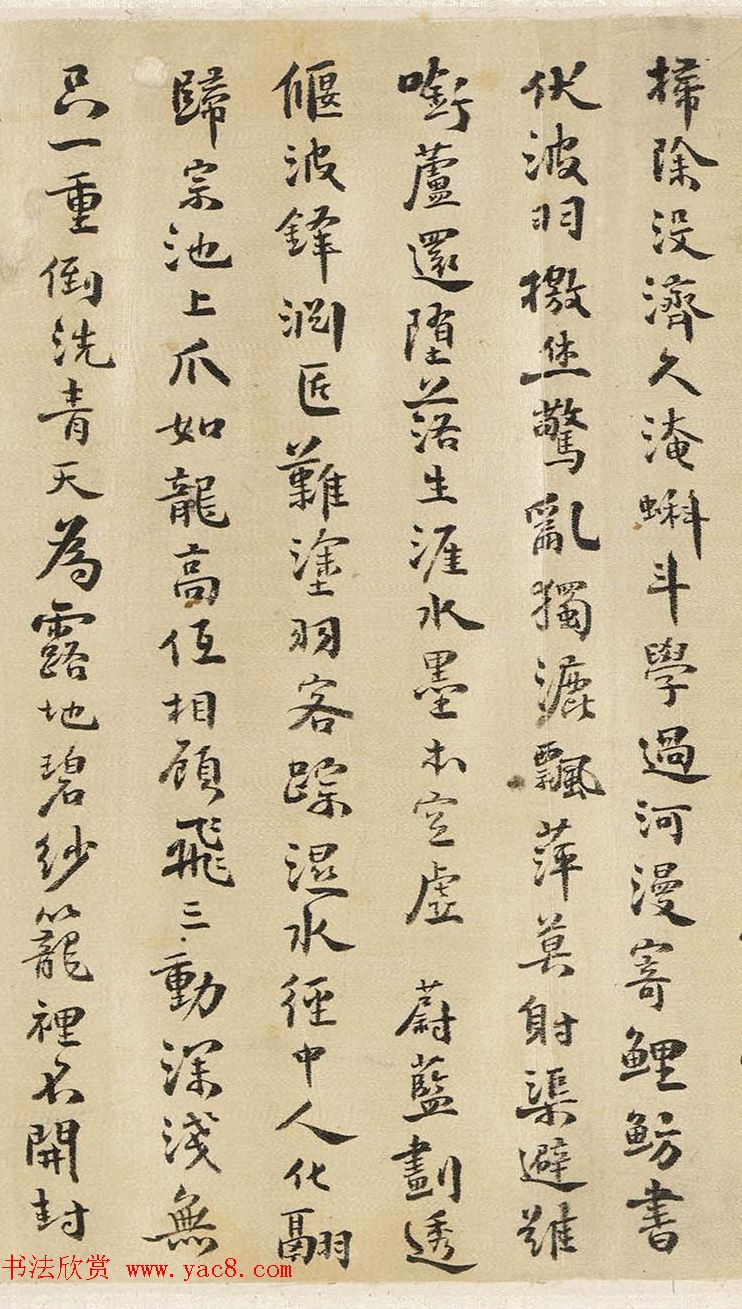 掃除沒濟久淹蝌斗學過河漫寄鯉魴書
伏波羽檄空驚亂獨漉飄萍莫射渠避難
銜蘆還墮落生涯水墨本空虛 蔚藍劃透
偃波鋒澗匝難塗羽客蹤濕水徑中人化翮
歸宗池上爪如龍高低相顧飛三動深淺無
只一重倒洗青天為露地碧紗籠裡不開封
书法欣赏 www.yac8.com